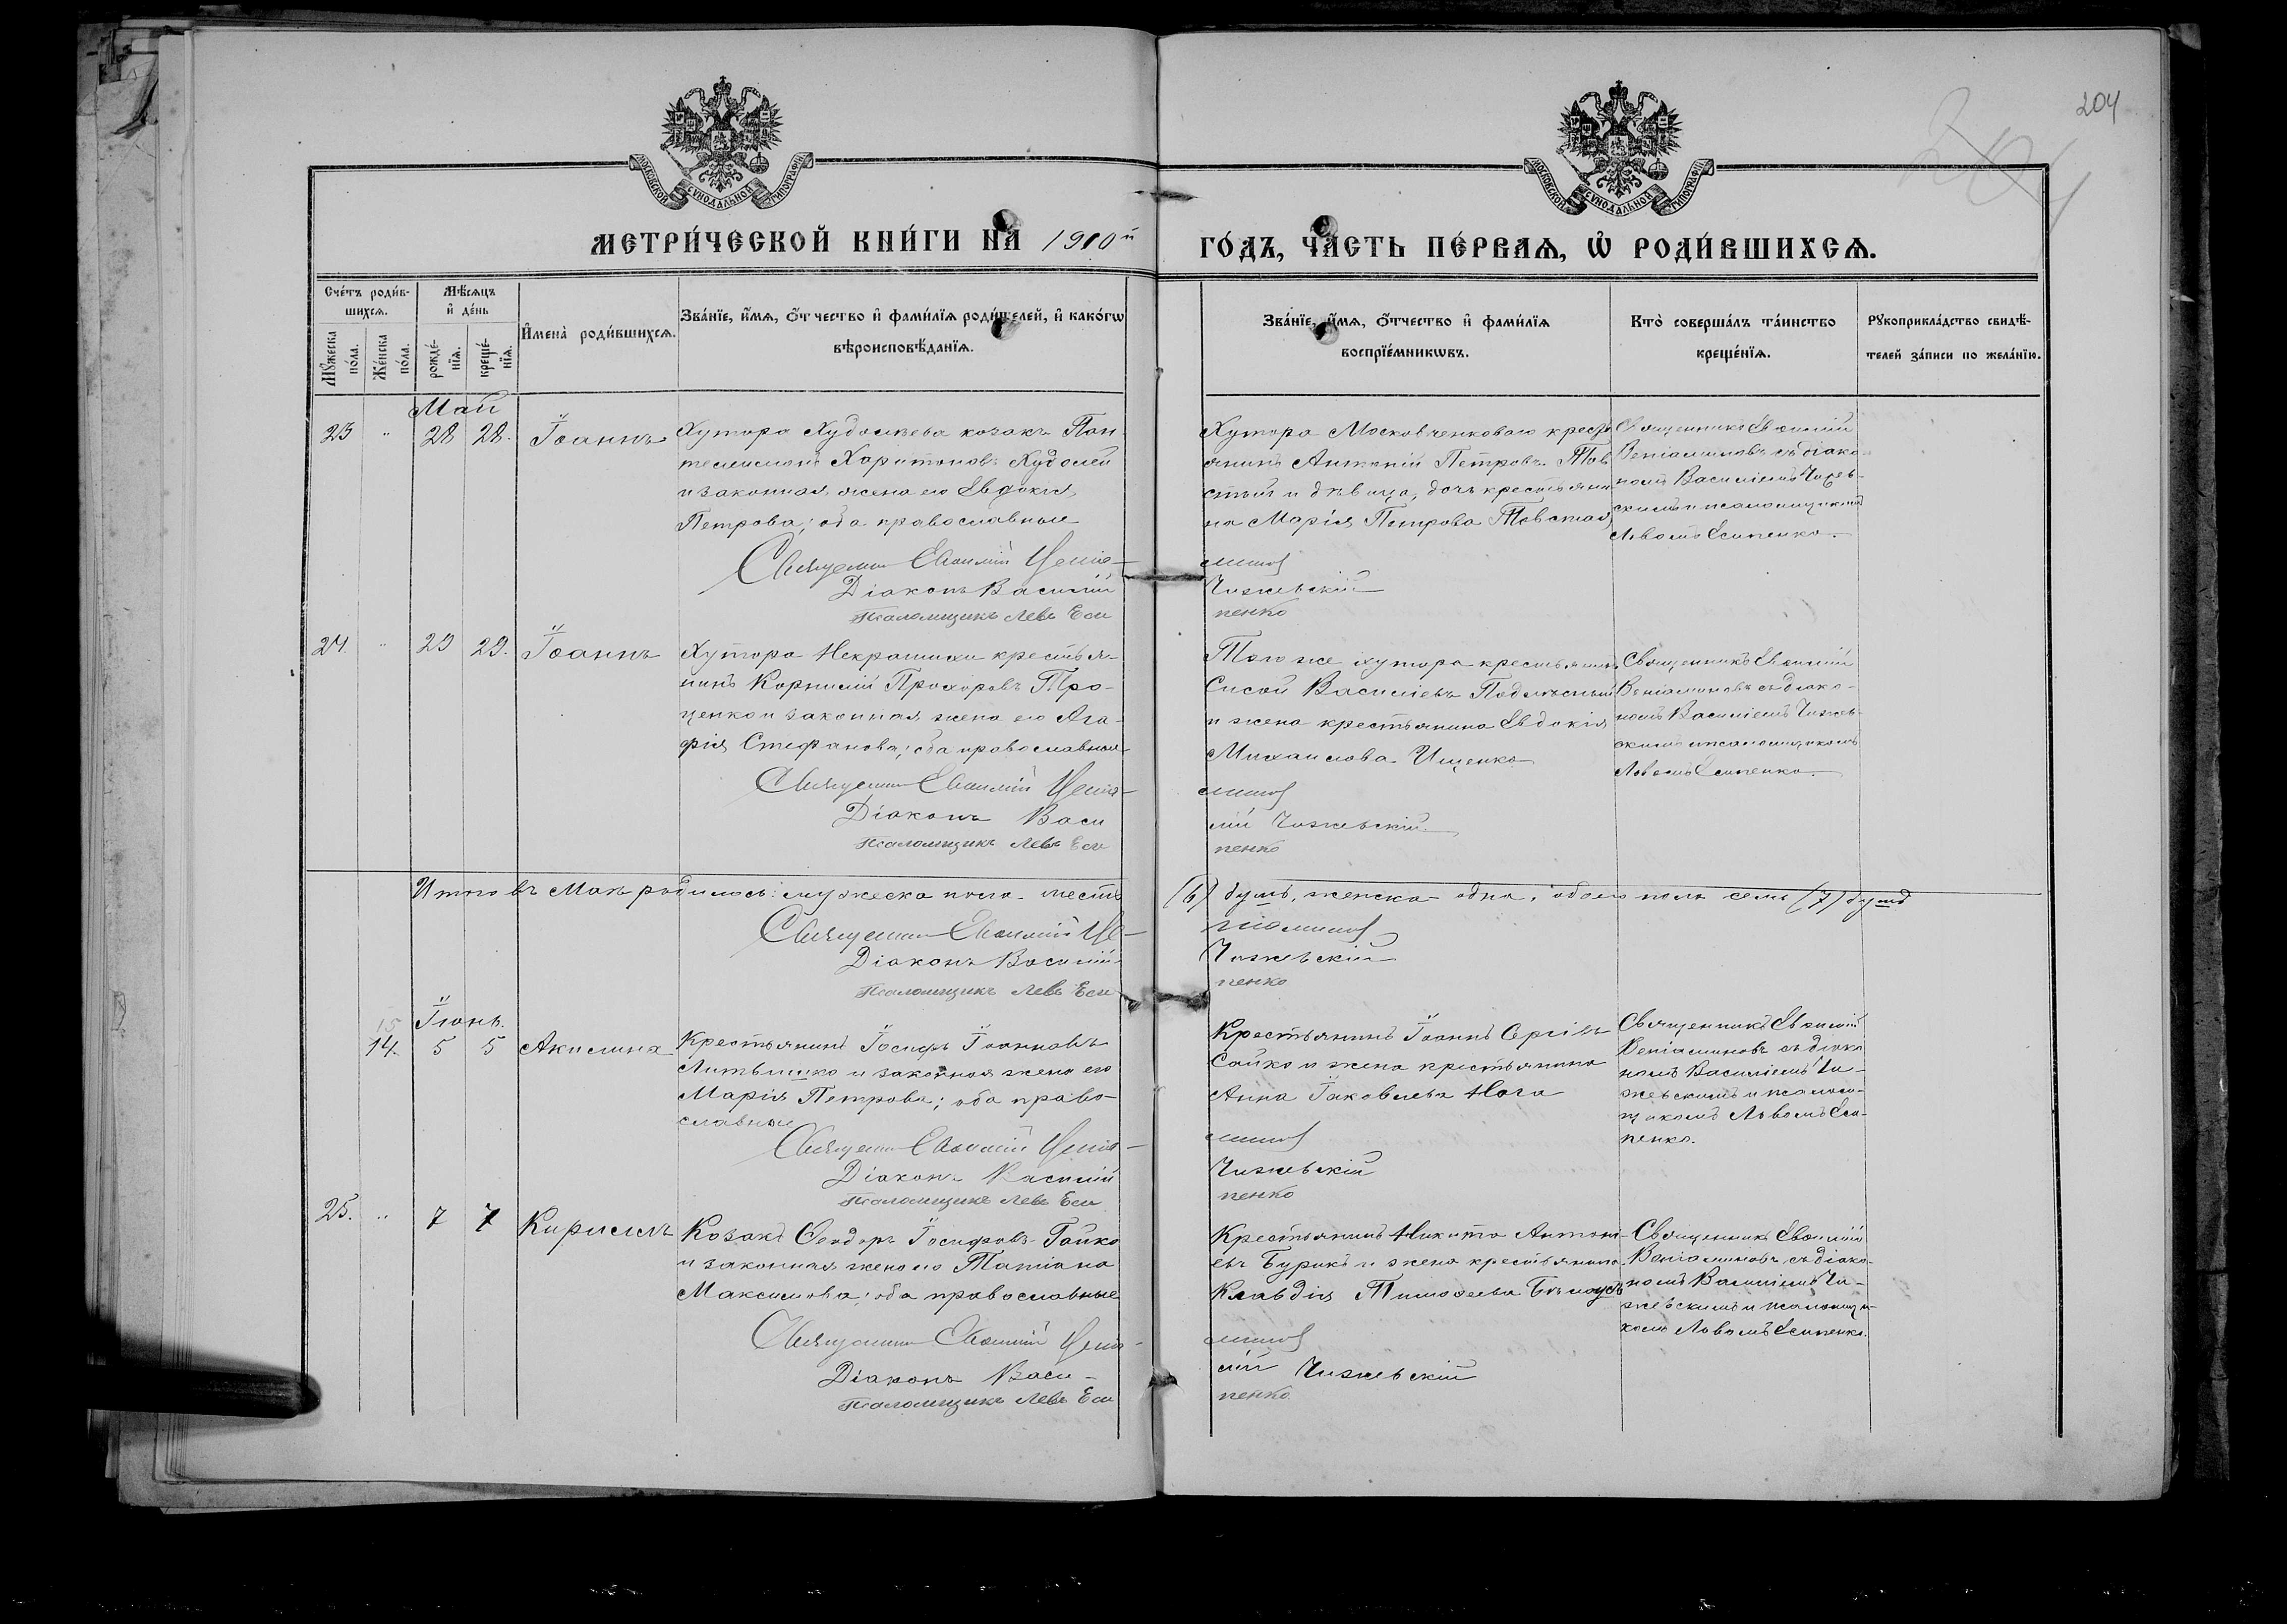 204
МОСКОВСКОЙ СѴНОДАЛЬНОЙ ТИПОГРАФІИ
МОСКОВСКОЙ СѴНОДАЛЬНОЙ ТИПОГРАФІИ
МЕТРИ́ЧЕСКОЙ КНИ́ГИ НА̀ 1910й
ГО́ДЪ, ЧА́СТЬ ПЕ́РВАѦ, Ѡ҆ РОДИ́ВШИХСѦ.
Сче́тъ роди́в-
шихсѧ.
Мꙋ́жеска по́ла.
Же́нска по́ла.
Мѣ́сѧцъ
и҆ де́нь
рожде́-
нїѧ.
креще́-
нїѧ.
И҆мена̀ роди́вшихсѧ.
Зва́нїе, и҆́мѧ, ѻ҆́тчество и҆ фами́лїѧ роди́телей, и҆ како́гѡ
вѣроисповѣ́данїѧ.
Зва́нїе, и҆́мѧ, ѻ҆́тчество и҆ фами́лїѧ
воспрїе́мникѡвъ.
Кто̀ соверша́лъ та́инство
креще́нїѧ.
Рꙋкоприкла́дство свидѣ́-
телей за́писи по жела́нїю.
Май
23 " 28 28. Іоаннъ
Хутора Худолѣева козакъ Пан
телеимонъ Харитоновъ Худолей
и законная жена его Евдокія
Петрова; оба православные
Священникъ Евѳимій Веніа-
Діаконъ Василій
Псаломщикъ Левъ Еси
Хутора Московченкова кресть
янинъ Антоній Петровъ Тов
стый и дѣвица, дочь крестьяни
на Марія Петрова Товстая
миновъ
Чижевскій
пенко
Священникъ Евѳимій
Веніаминовъ съ діако-
номъ Василіемъ Чижев-
скимъ и псаломщикомъ
Львомъ Есипенко.
24. " 29 29. Іоаннъ
Хутора Некрашихи крестья-
нинъ Корнилій Прохоровъ Про-
ценко и законная жена его Ага-
фія Стефанова; оба православные
Священникъ Евѳимій Веніа-
Діаконъ Васи
Псаломщикъ Левъ Еси
Того же хутора крестьянинъ
Сисой Василіевъ Подлѣсный
и жена крестьянина Евдокія
Михаилова Ищенко
миновъ
лій Чижевскій
пенко
Священникъ Евѳимій
Веніаминовъ съ діако-
номъ Василіемъ Чижев-
скимъ и псаломщикомъ
Львомъ Есипенко.
Итого въ Маѣ родилось: мужеска пола шесть (6) душъ, женска одна, обоего пола семь (7) душъ
Священникъ Евѳимій Ве-
Діаконъ Василій
Псаломщикъ Левъ Еси
ніаминовъ
Чижевскій
пенко
Іюнь.
15
14. 5 5 Акилина
Крестьянинъ Іосифъ Іоанновъ
Литвишко и законная жена его
Марія Петрова; оба право-
славные
Священникъ Евѳимій Веніа-
Діаконъ Василій
Псаломщикъ Левъ Еси
Крестьянинъ Іоаннъ Сергіевъ
Сайко и жена крестьянина
Анна Іаковлева Нога
миновъ
Чижевскій
пенко
Священникъ Евѳимій
Веніаминовъ съ діако
номъ Василіемъ Чи-
жевскимъ и псалом-
щикомъ Львомъ Еси-
пенко.
25. " 7 7 Кириллъ
Козакъ Ѳеодоръ Іосифовъ Гайко
и законная жена его Татіана
Максимова; оба православные
Священникъ Евѳимій Веніа-
Діаконъ Васи-
Псаломщикъ Левъ Еси
Крестьянинъ Никита Антоні-
евъ Бурикъ и жена крестьянина
Клавдія Тимоѳеева Бѣлоусъ
миновъ
лій Чижевскій
пенко
Священникъ Евѳимій
Веніаминовъ съ діако-
номъ Василіемъ Чи-
жевскимъ и псаломщи-
комъ Львомъ Есипенко.